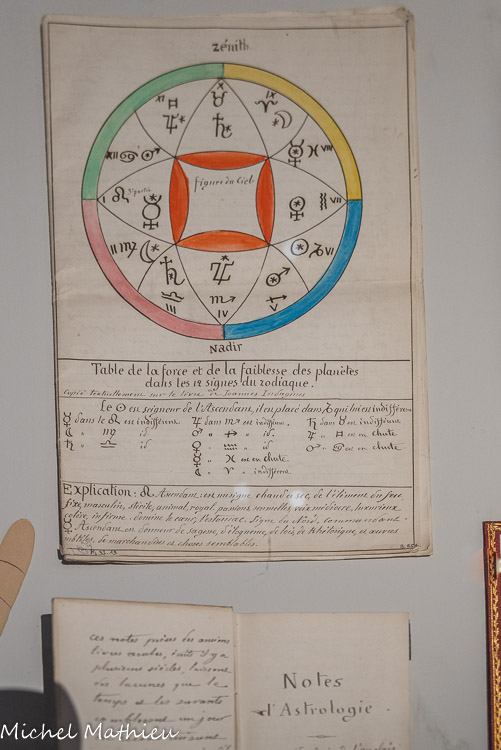 Zénith
IX
XI
XII
VIII
figure du Ciel
I
VII
II
VI
III
IV
V
Nadir
Table de la force et de la faiblesse des planètes
dans les 12 signes du zodiaque.
Copié textuellement sur le livre de Joannes Indagines
Le ☉ est seigneur de l'Ascendant, il est placé dans ♑ qui lui est indifférent
☿ dans le ♌ est indifférent. ♃ dans ♏ est indifférent. ♄ dans ♉ est indifférent
☾ " ♍ id. ♂ " ♐ " id. ♃ " ♊ est en chute
♄ " ♎ id ♀ " ♒ " id. ♂ " ♋ est en chute
☿ " ♓ est en chute
☾ " ♈ " indifférent
Explication : ♌ Ascendant : est masculin, chaud et sec, de l'élément du feu
fixe, stérile, animal, royal, passions sensuelles, voix médiocre, luxurieux
colère, infirme : domine le cœur, l'estomac. Signe du Nord, commandant.
☿ Ascendant est donneur de sagesse, d'éloquence, de loix, de Rhétorique, et œuvres
de marchandises et choses semblables.
ces notes prises des anciens
livres écrits il y a
plusieurs siècles, laissent
des lacunes que le
temps et les savants
combleront un jour
Notes
d'Astrologie.
Michel Mathieu